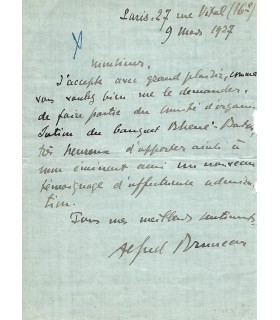 Paris. 27 rue Vital (16e)
9 mars 1927
Monsieur,
J'accepte avec grand plaisir, comme
vous voulez bien me le demander,
de faire partie du Comité d'organi-
sation du banquet Rhené-Baton,
très heureux d'apporter ainsi à
mon éminent ami un nouveau
témoignage d'affectueuse admira-
tion.
Tous mes meilleurs sentiments
Alfred Bruneau